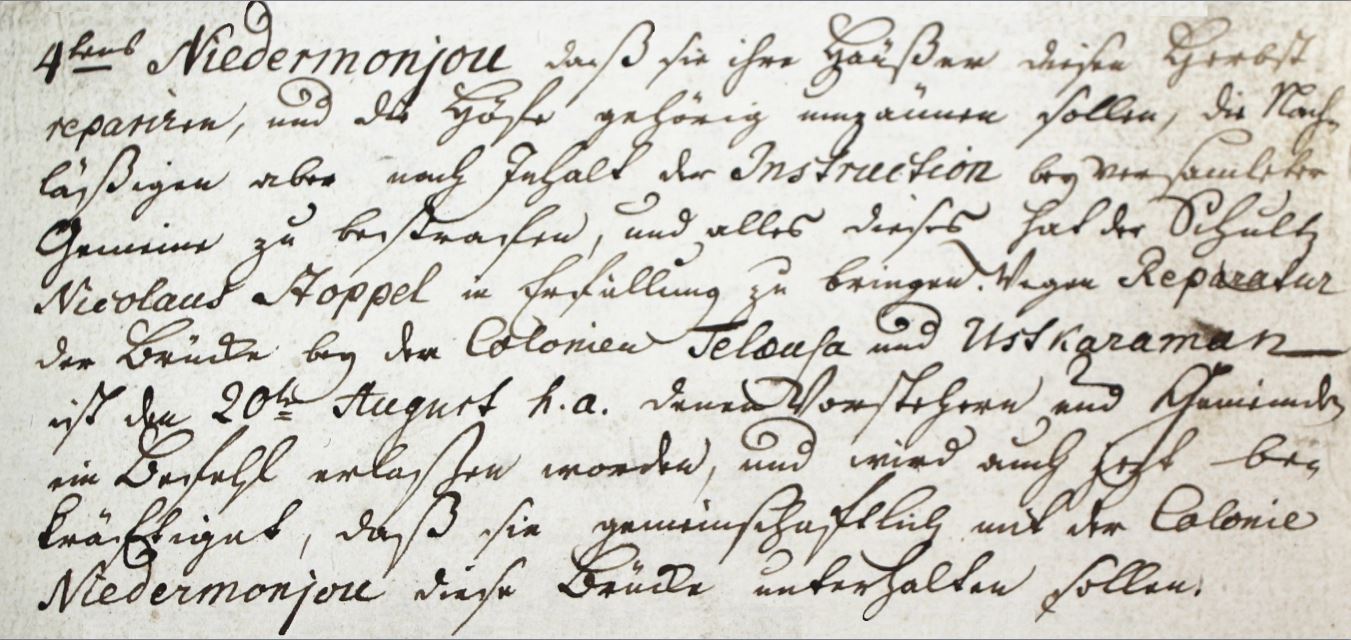 4tens Niedermonjou daß sie ihre Häußer diesen Herbst
repariren, und die Höfe gehörig umzäunen sollen, die Nach-
läßigen aber nach Inhalt der Instruction bey versamleter
Gemeine zu bestrafen, und alles dieses hat der Schultz
Nicolaus Stoppel in Erfüllung zu bringen. Wegen Reparatur
der Brücke bey den Colonien Telausa und Ustkaraman
ist den 20te August h. a. denen Vorstehern und Gemeinden
ein Befehl erlaßen worden, und wird auch jezt be-
kräftiget, daß sie gemeinschaftlich mit der Colonie
Niedermonjou diese Brücke unterhalten sollen.